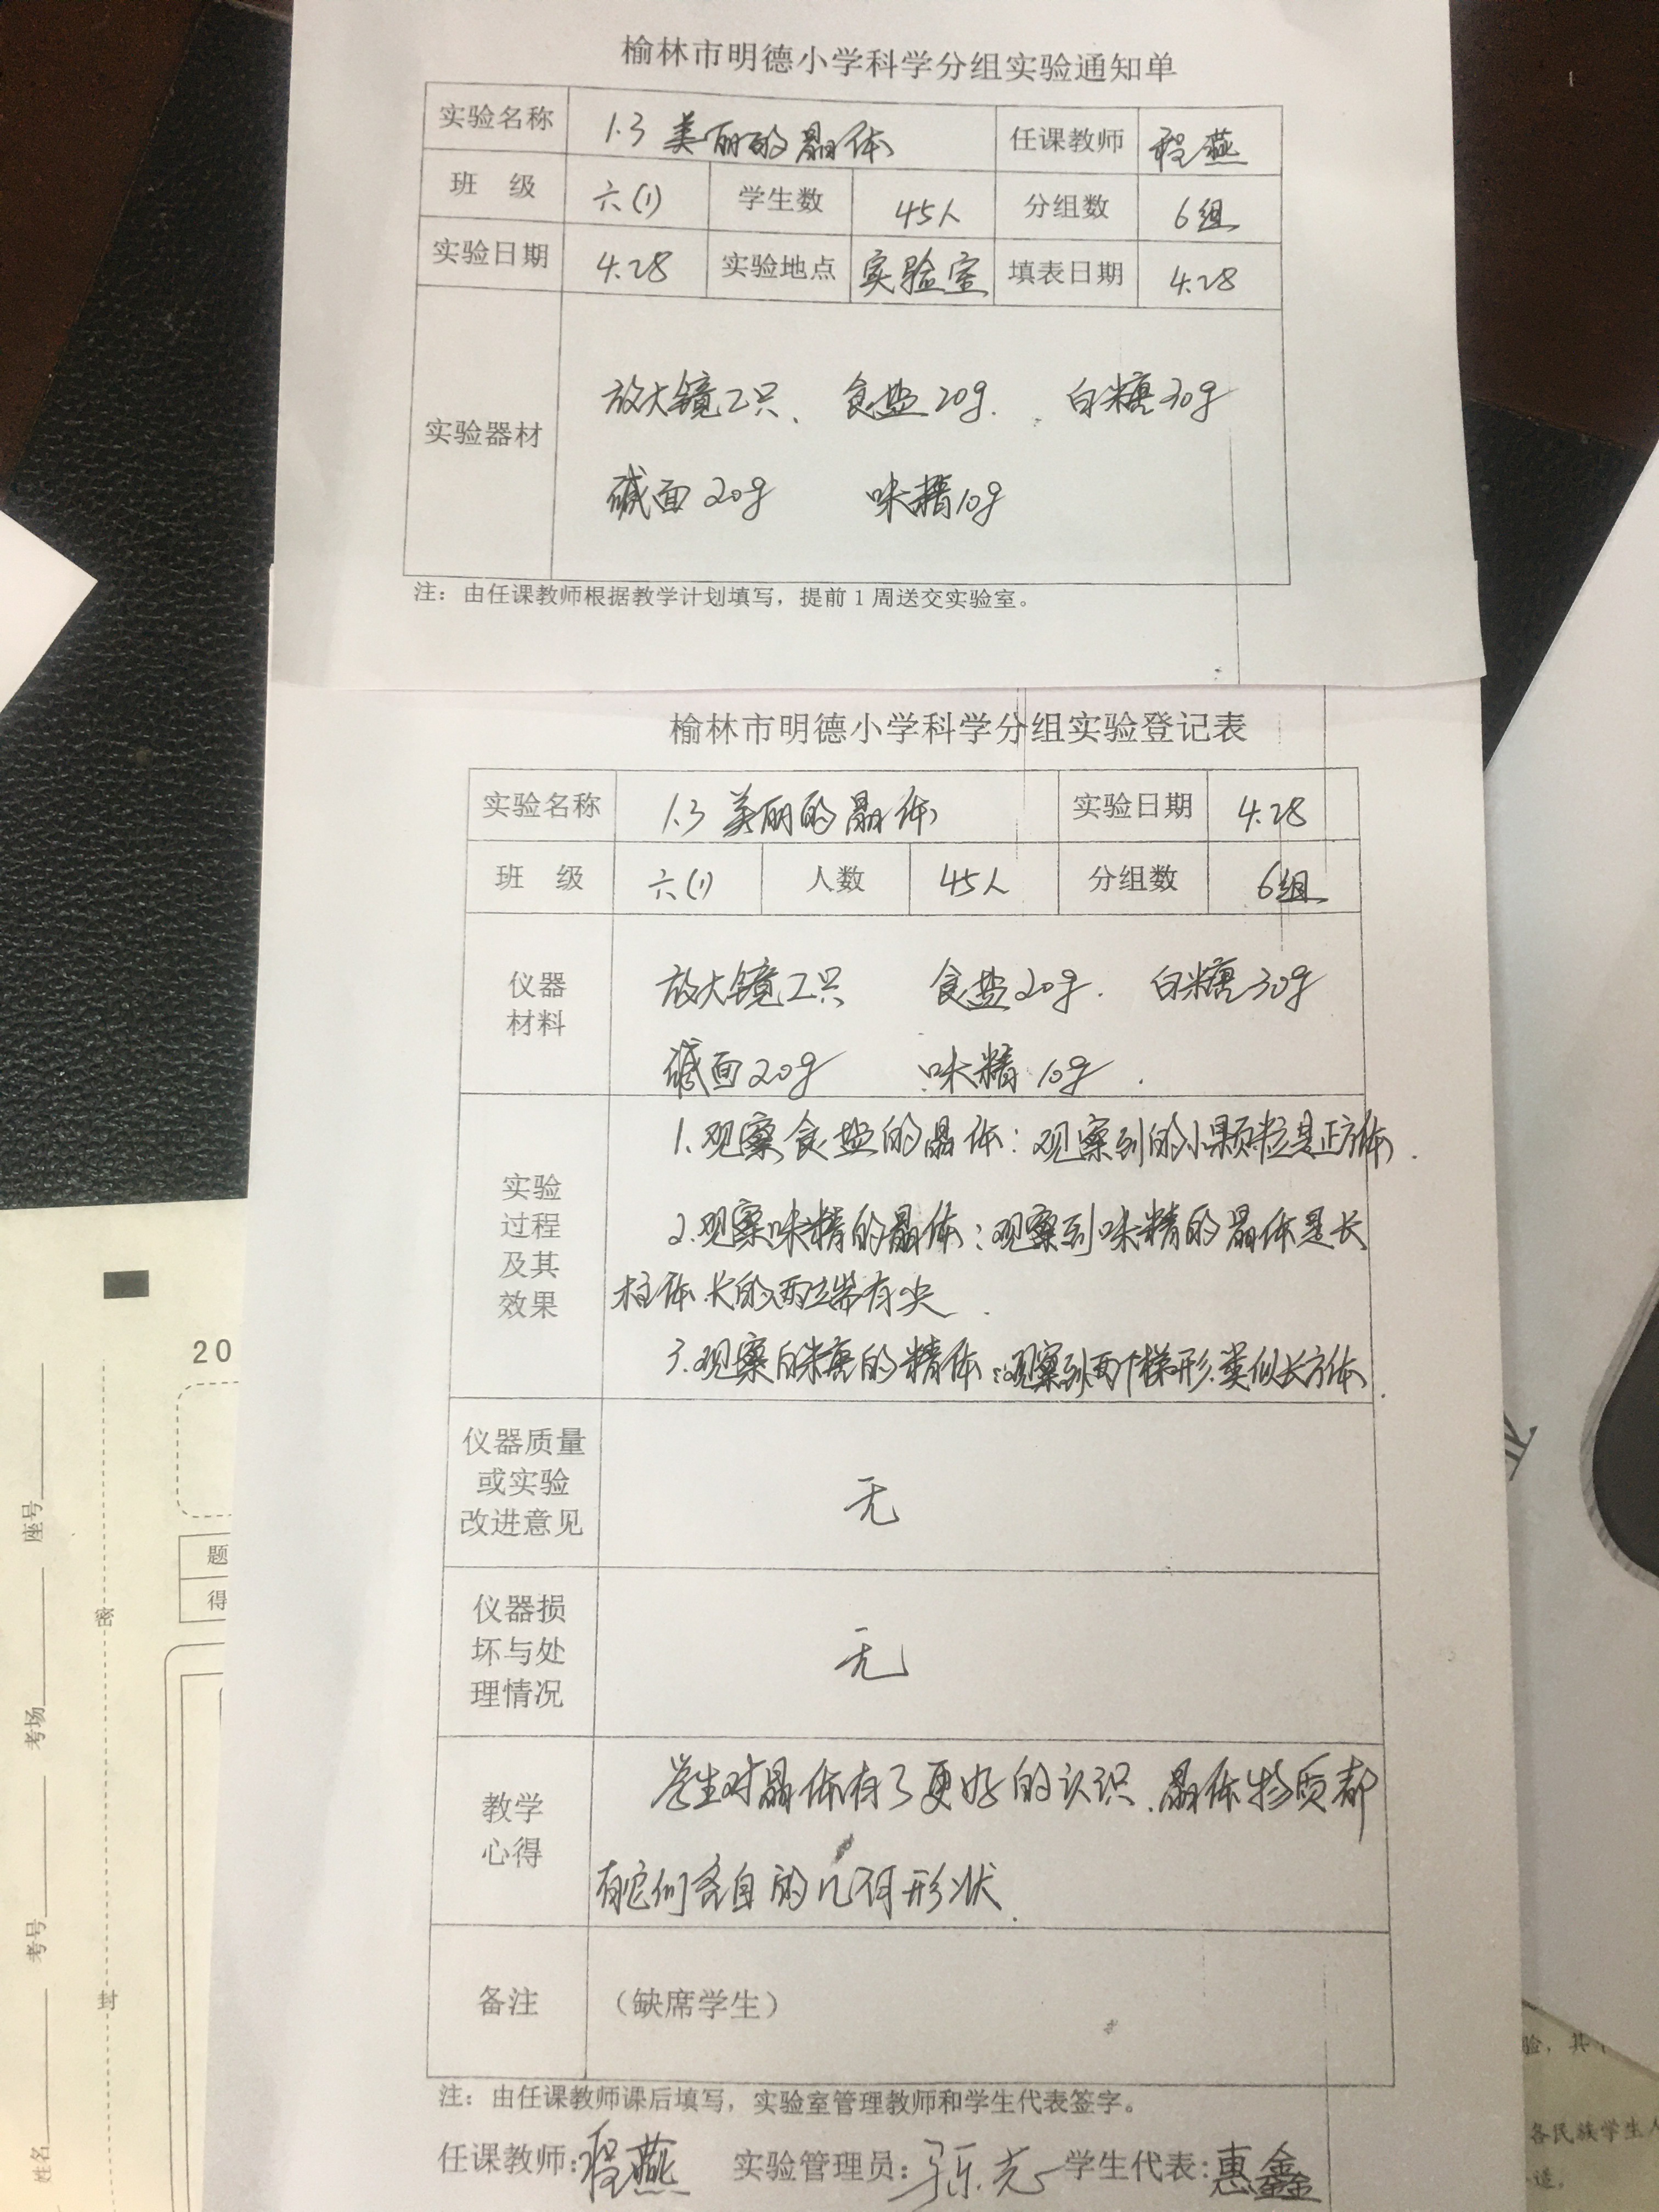 榆林市明德小学科学分组实验通知单
实验名称 1.3 美丽的晶体 任课教师 程燕
班 级 六(1) 学生数 45人 分组数 6组
实验日期 4.28 实验地点 实验室 填表日期 4.28
放大镜2只、 食盐20g. 白糖30g
实验器材
碱面20g 味精10g
注：由任课教师根据教学计划填写，提前1周送交实验室。
榆林市明德小学科学分组实验登记表
实验名称 1.3 美丽的晶体 实验日期 4.28
班 级 六(1) 人数 45人 分组数 6组
仪器
材料
放大镜2只 食盐20g. 白糖30g
碱面20g 味精10g.
实验
过程
及其
效果
1.观察食盐的晶体：观察到的小颗粒是正方体.
2.观察味精的晶体：观察到味精的晶体是长
柱体.长的两端有尖.
3.观察白糖的精体：观察到两个梯形.类似长方体.
仪器质量
或实验
改进意见
无
仪器损
坏与处
理情况
无
教学
心得
学生对晶体有了更好的认识.晶体物质都
有它们各自的几何形状.
备注 （缺席学生）
注：由任课教师课后填写，实验室管理教师和学生代表签字。
任课教师：程燕 实验管理员： 学生代表：惠鑫
20
题
得
座号
考场
考号
姓名
密
封
验，其
各民族学生人